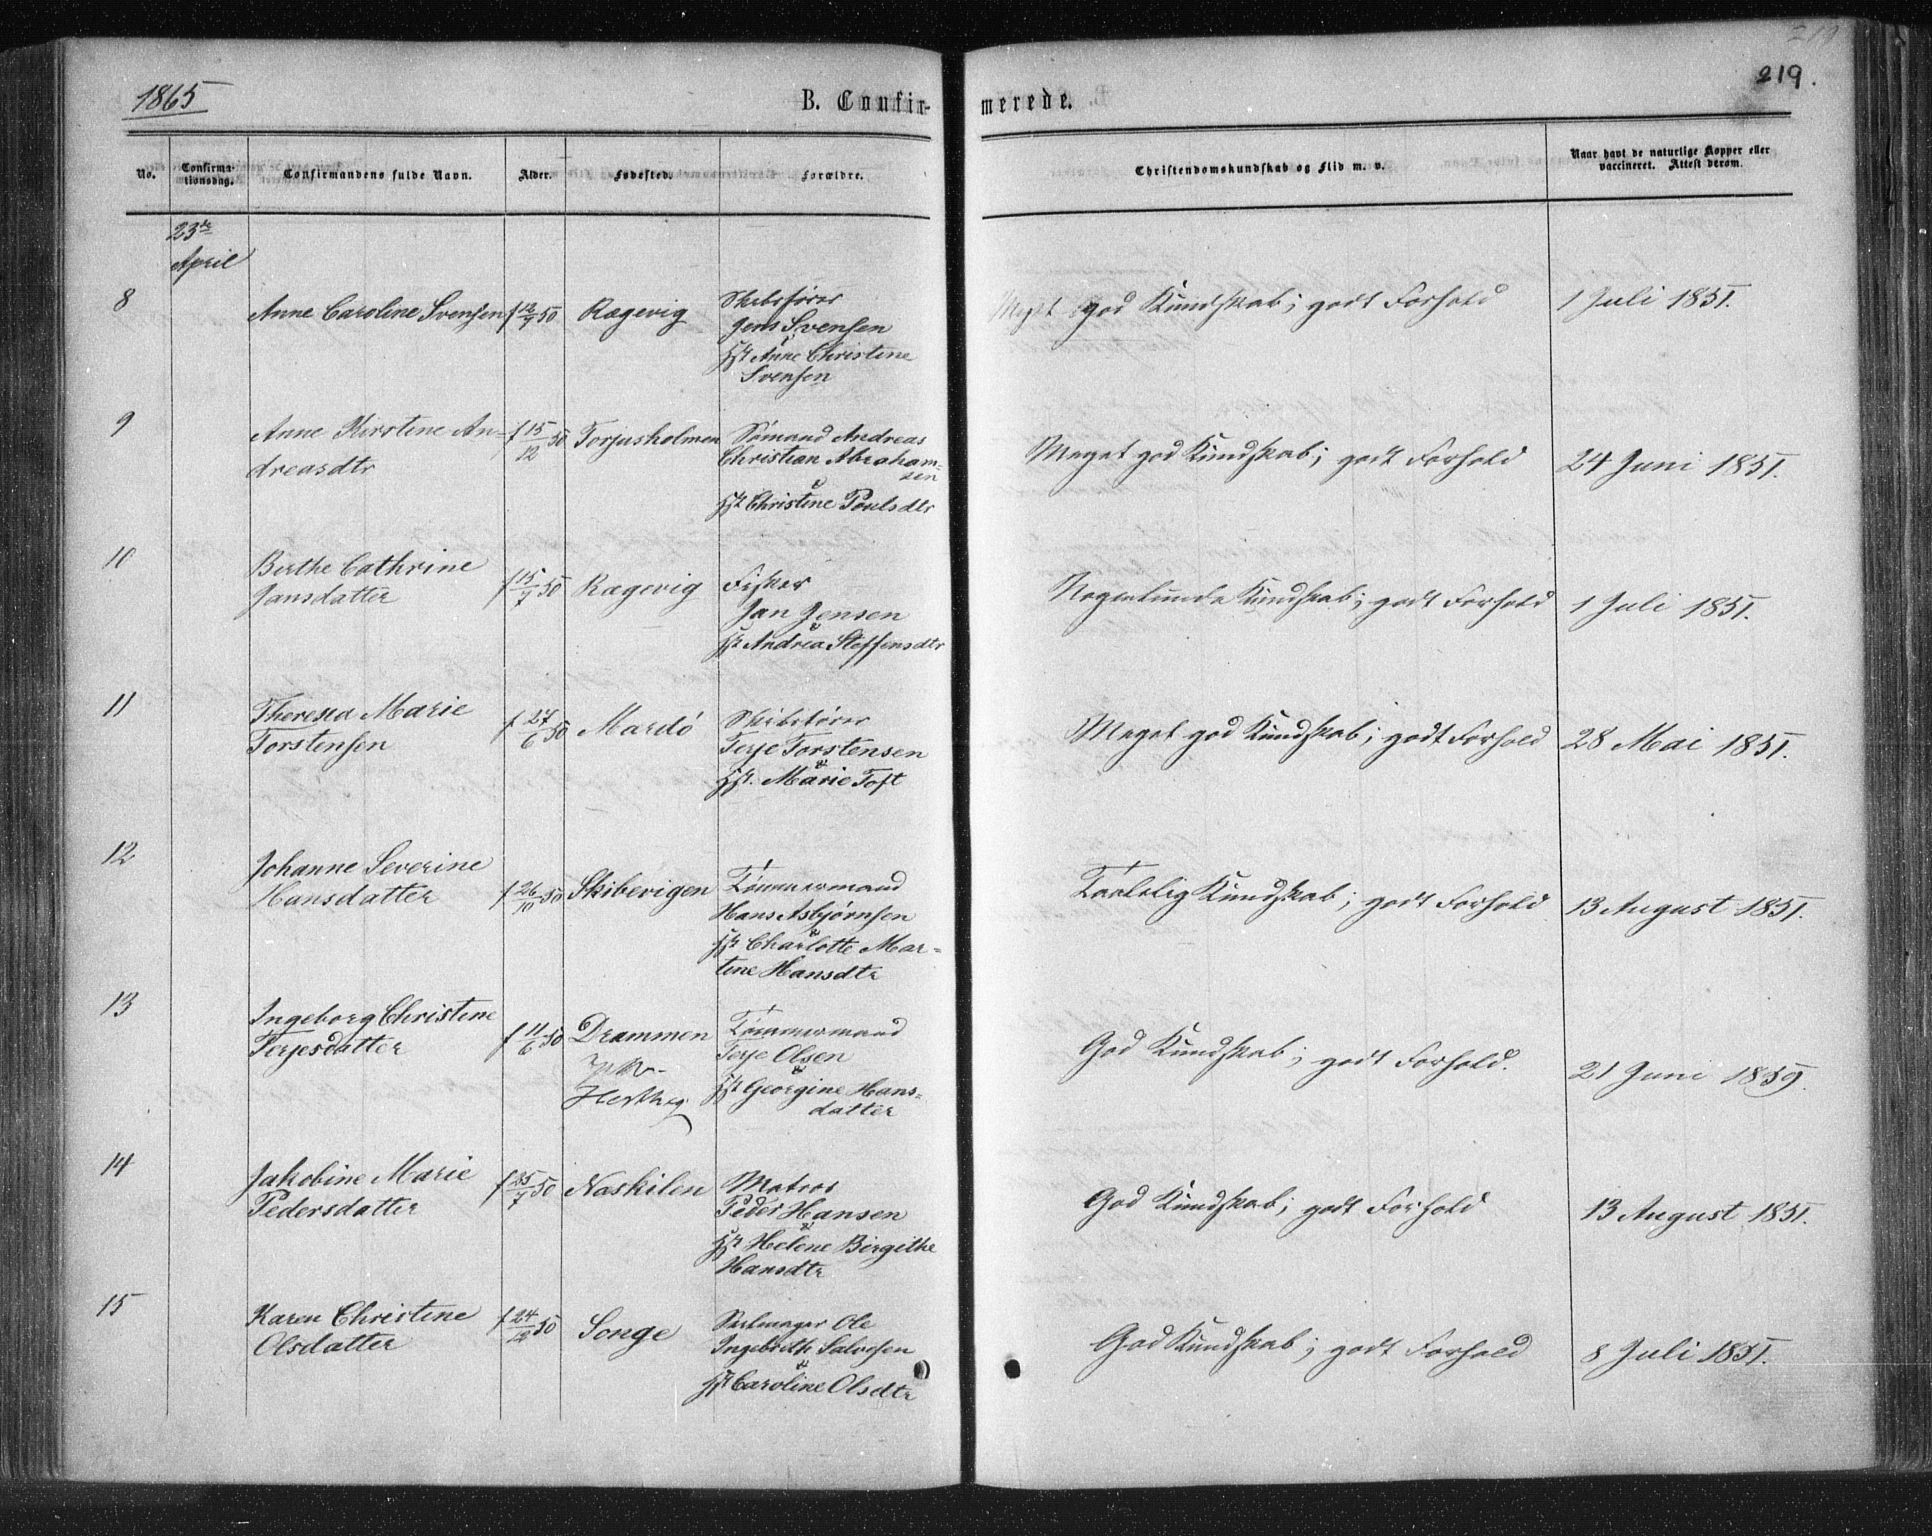 1865
B. Confir-
merede.
219.
No.
Confirma-
tionsdag.
Confirmandens fulde Navn.
Alder.
Fødested.
Forældre.
Christendomskundskab og Flid m. v.
Naar havt de naturlige Kopper eller
vaccineret. Attest derom.
23de
April
8
Anne Caroline Svensen
f 12/7 50
Rægevig
Skibsfører
Jens Svensen
&
Hst. Anne Christine
Svensen
Meget god Kundskab; godt Forhold
1 Juli 1851.
9
Anne Kirstine An-
dreasdtr
f 15/12 50
Torjusholmen
Sømand Andreas
Christian Abraham-
sen
&
Hst. Christine Poulsdtr
Meget god Kundskab; godt Forhold
24 Juni 1851.
10
Berthe Cathrine
Jansdatter
f 15/7 50
Rægevig
Fisker
Jan Jensen
&
Hst. Andrea Steffensdtr
Nogenlunde Kundskab; godt Forhold
1 Juli 1851.
11
Theresea Marie
Torstensen
f 27/6 50
Mardö
Skibsfører
Terje Torstensen
&
Hst. Marie Toft
Meget god Kundskab; godt Forhold
28 Mai 1851.
12
Johanne Severine
Hansdatter
f 26/10 50
Skibevigen
Tømmermand
Hans Asbjørnsen
&
Hst. Charlotte Mar-
tine Hansdtr
Taalelig Kundskab; godt Forhold
13 August 1851.
13
Ingeborg Christine
Terjesdatter
f 11/6 50
Drammen
Tømmermand
Terje Olsen
&
Hst. Georgine Hans-
datter
God Kundskab; godt Forhold.
21 Juni 1859.
14
Jakobine Marie
Pedersdatter
f 25/7 50
Naskilen
Matros
Peder Hansen
&
Hst. Helene Birgithe
Hansdtr
God Kundskab; godt Forhold
13 August 1851.
15
Karen Christine
Olsdatter
f 24/12 50
Songe
Seilmager Ole
Ingebreth Salvesen
&
Hst. Caroline Olsdtr
God Kundskab; godt Forhold
8 Juli 1851.